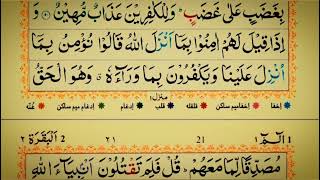 بِغَضَبٍ عَلٰى غَضَبٍ ؕ وَلِلْكٰفِرِيْنَ عَذَابٌ مُّهِيْنٌ ۞ وَ
اِذَا قِيْلَ لَهُمْ اٰمِنُوْا بِمَاۤ اَنْزَلَ اللّٰهُ قَالُوْا نُؤْمِنُ بِمَاۤ
اُنْزِلَ عَلَيْنَا وَيَكْفُرُوْنَ بِمَا وَرَآءَهٗ ۗ وَهُوَ الْحَقُّ
منزل ۱
اخفا اخفامیم ساکن قلقله قلب ادغام ادغام میم ساکن غنّه
البقرة ۲ ۲۱ 21 الٓمّٓ ۱
مُصَدِّقًا لِّمَا مَعَهُمْ ؕ قُلْ فَلِمَ تَقْتُلُوْنَ اَنْۢبِيَآءَ اللّٰهِ